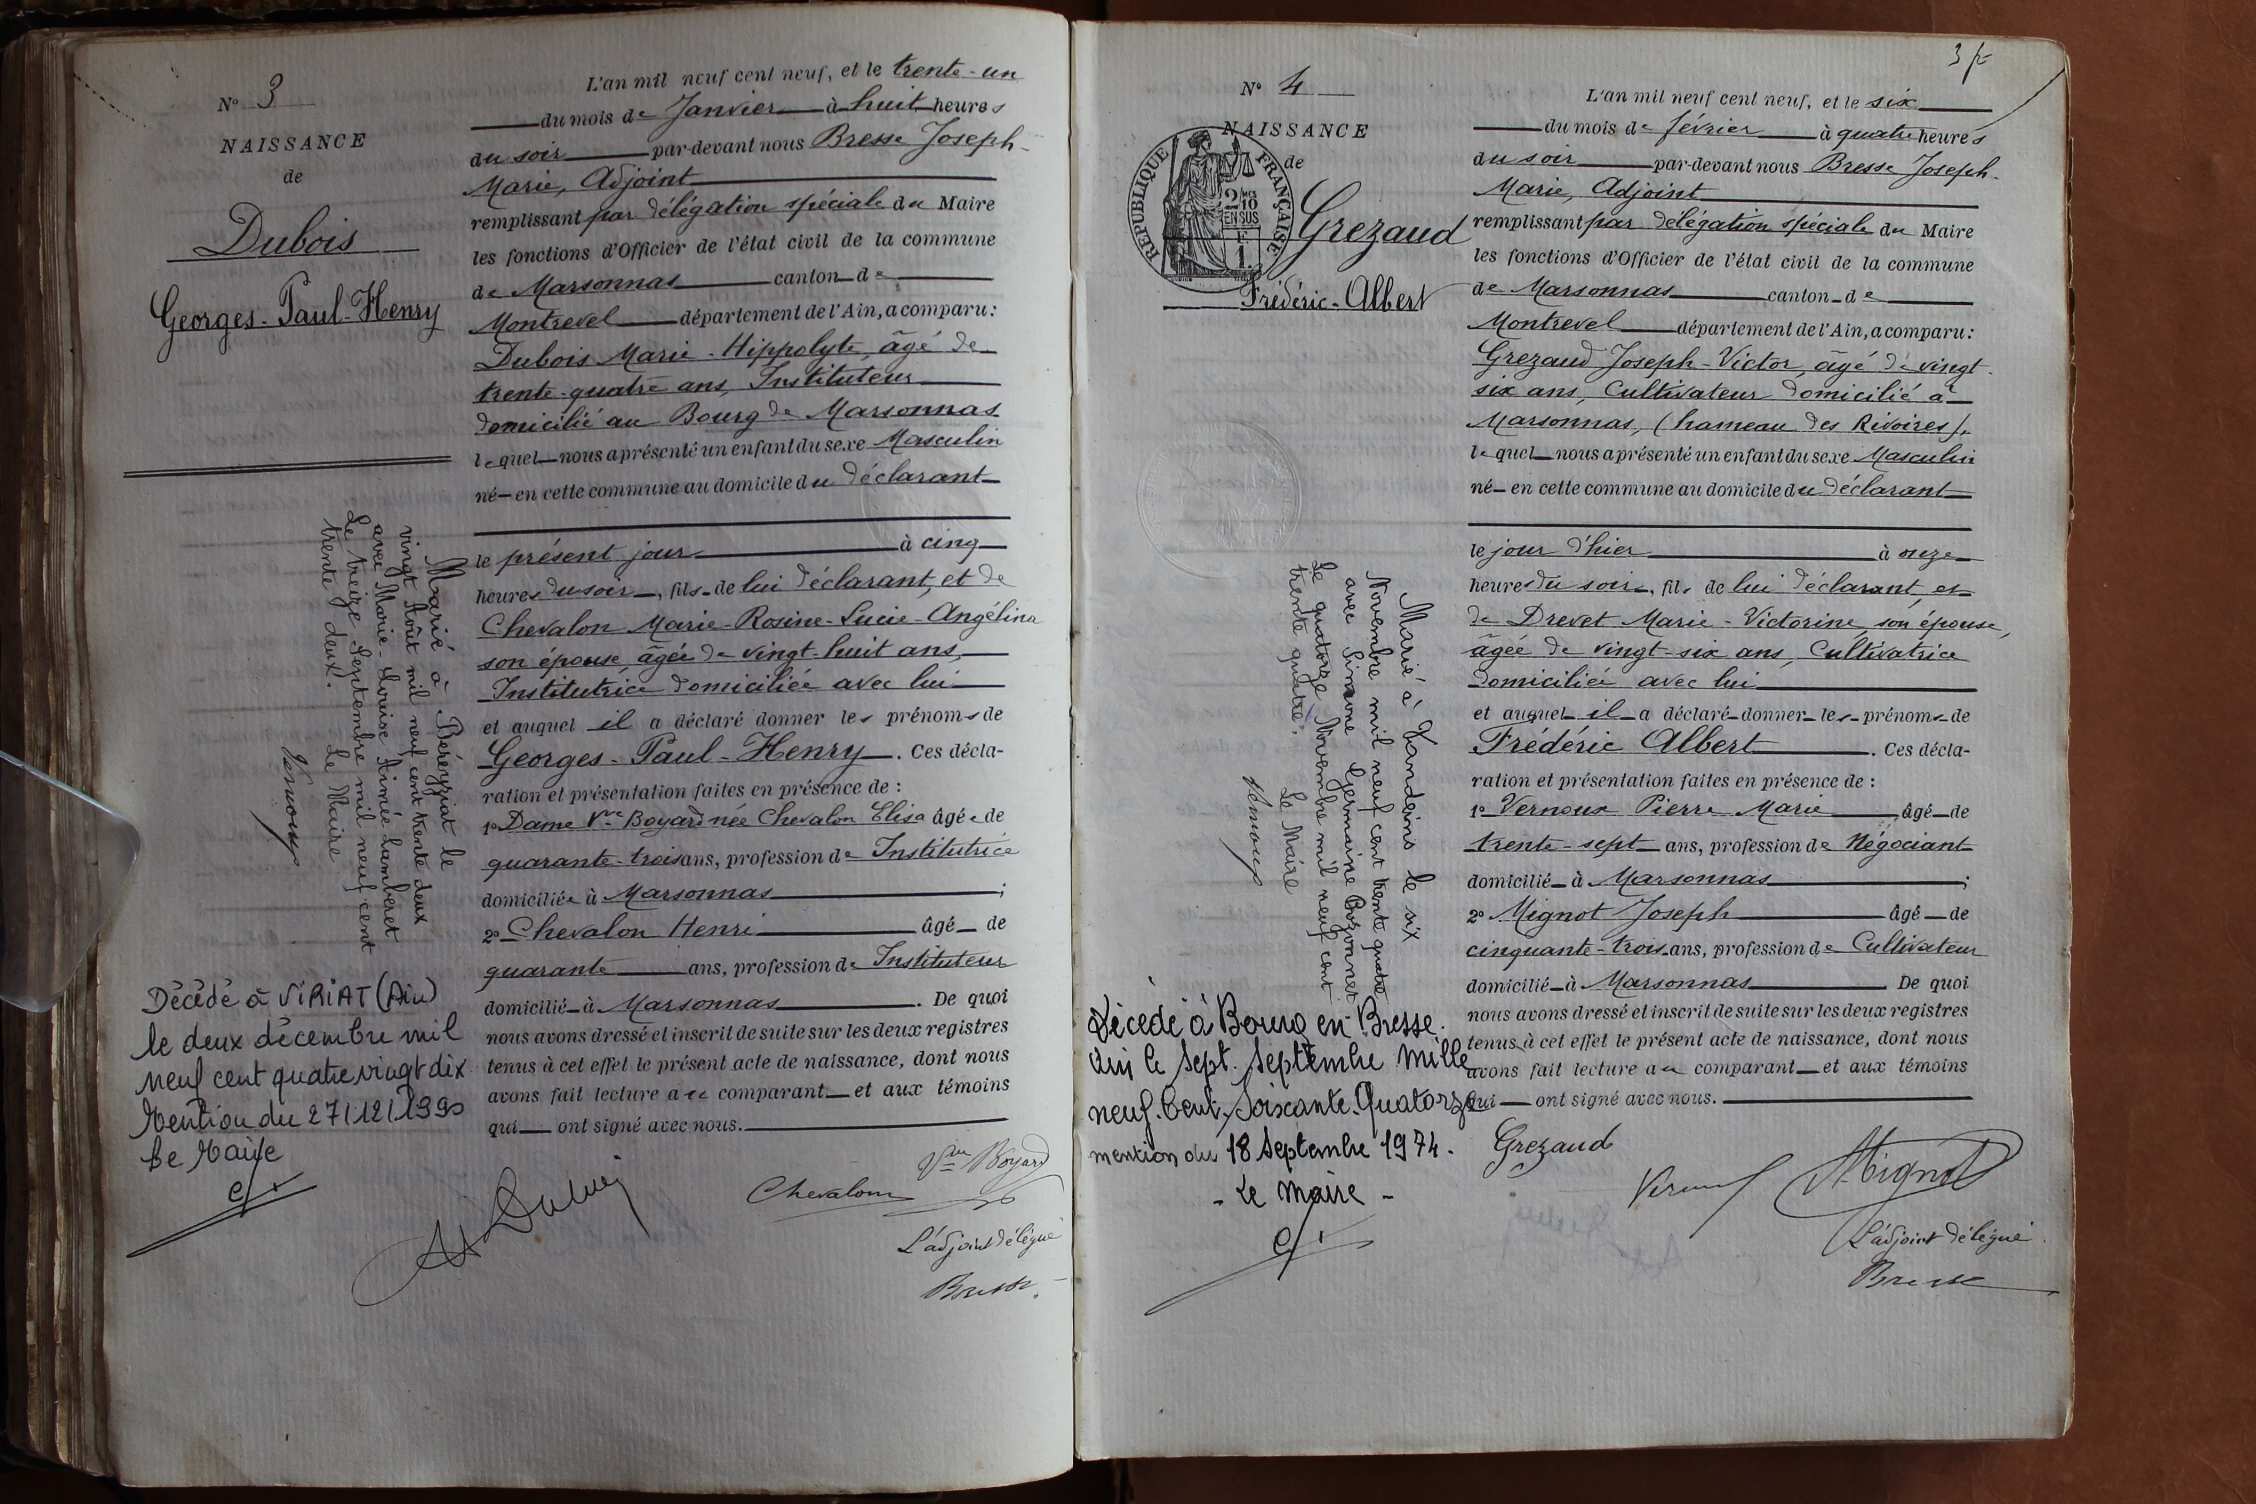 N° 3
NAISSANCE
de
Dubois
Georges-Paul-Henry
L'an mil neuf cent neuf, et le trente-un
du mois de Janvier à huit heures
du soir par-devant nous Bresse Joseph-
Marie, Adjoint
remplissant par délégation spéciale du Maire
les fonctions d'Officier de l'état civil de la commune
de Marsonnas canton de
Montrevel département de l'Ain, a comparu:
Dubois Marie-Hippolyte, âgé de
trente-quatre ans, Instituteur
domicilié au Bourg de Marsonnas
lequel nous a présenté un enfant du sexe Masculin
né en cette commune au domicile du déclarant
le présent jour à cinq
heures du soir, fils de lui déclarant, et de
Chevalon Marie-Rosine-Lucie-Angélina
son épouse, âgée de vingt-huit ans,
Institutrice domiciliée avec lui
et auquel il a déclaré donner les prénoms de
Georges-Paul-Henry. Ces décla-
ration et présentation faites en présence de :
1° Dame Vve Boyard née Chevalon Elisa âgée de
quarante-trois ans, profession de Institutrice
domiciliée à Marsonnas ;
2° Chevalon Henri âgé de
quarante ans, profession de Instituteur
domicilié à Marsonnas. De quoi
nous avons dressé et inscrit de suite sur les deux registres
tenus à cet effet le présent acte de naissance, dont nous
avons fait lecture au comparant et aux témoins
qui ont signé avec nous.
Vve Boyard
Chevalon
L'adjoint délégué
Bresse
Marié à Béréziat le
vingt Août mil neuf cent trente deux
avec Marie-Louise Aimée Lamberet
Le treize Septembre mil neuf cent
trente deux. Le Maire
Décédé à VIRIAT (Ain)
le deux décembre mil
neuf cent quatre vingt dix
Mention du 27/12/1990
Le Maire
3
N° 4
NAISSANCE
de
RÉPUBLIQUE FRANÇAISE
2/10
EN SUS
Grezaud
Frédéric-Albert
L'an mil neuf cent neuf, et le six
du mois de février à quatre heures
du soir par-devant nous Bresse Joseph-
Marie, Adjoint
remplissant par délégation spéciale du Maire
les fonctions d'Officier de l'état civil de la commune
de Marsonnas canton de
Montrevel département de l'Ain, a comparu:
Grezaud Joseph-Victor, âgé de vingt-
six ans, Cultivateur domicilié à
Marsonnas, (hameau des Rivoires),
lequel nous a présenté un enfant du sexe Masculin
né en cette commune au domicile du déclarant
le jour d'hier à onze
heures du soir, fils de lui déclarant, et
de Drevet Marie-Victorine, son épouse,
âgée de vingt-six ans, Cultivatrice
domiciliée avec lui
et auquel il a déclaré donner les prénoms de
Frédéric Albert. Ces décla-
ration et présentation faites en présence de :
1° Vernoux Pierre Marie, âgé de
trente-sept ans, profession de Négociant
domicilié à Marsonnas ;
2° Mignot Joseph âgé de
cinquante-trois ans, profession de Cultivateur
domicilié à Marsonnas De quoi
nous avons dressé et inscrit de suite sur les deux registres
tenus à cet effet le présent acte de naissance, dont nous
avons fait lecture au comparant et aux témoins
qui ont signé avec nous.
Grezaud
Mignot
L'adjoint délégué
Bresse
Marié à Vandeins le six
Novembre mil neuf cent trente quatre
avec Simone Germaine
Le quatorze Novembre mil neuf cent
trente quatre. Le Maire
Décédé à Bourg en Bresse.
Ain le Sept. Septembre Mille
neuf. Cent. Soixante. Quatorze
mention du 18 Septembre 1974.
- Le Maire -